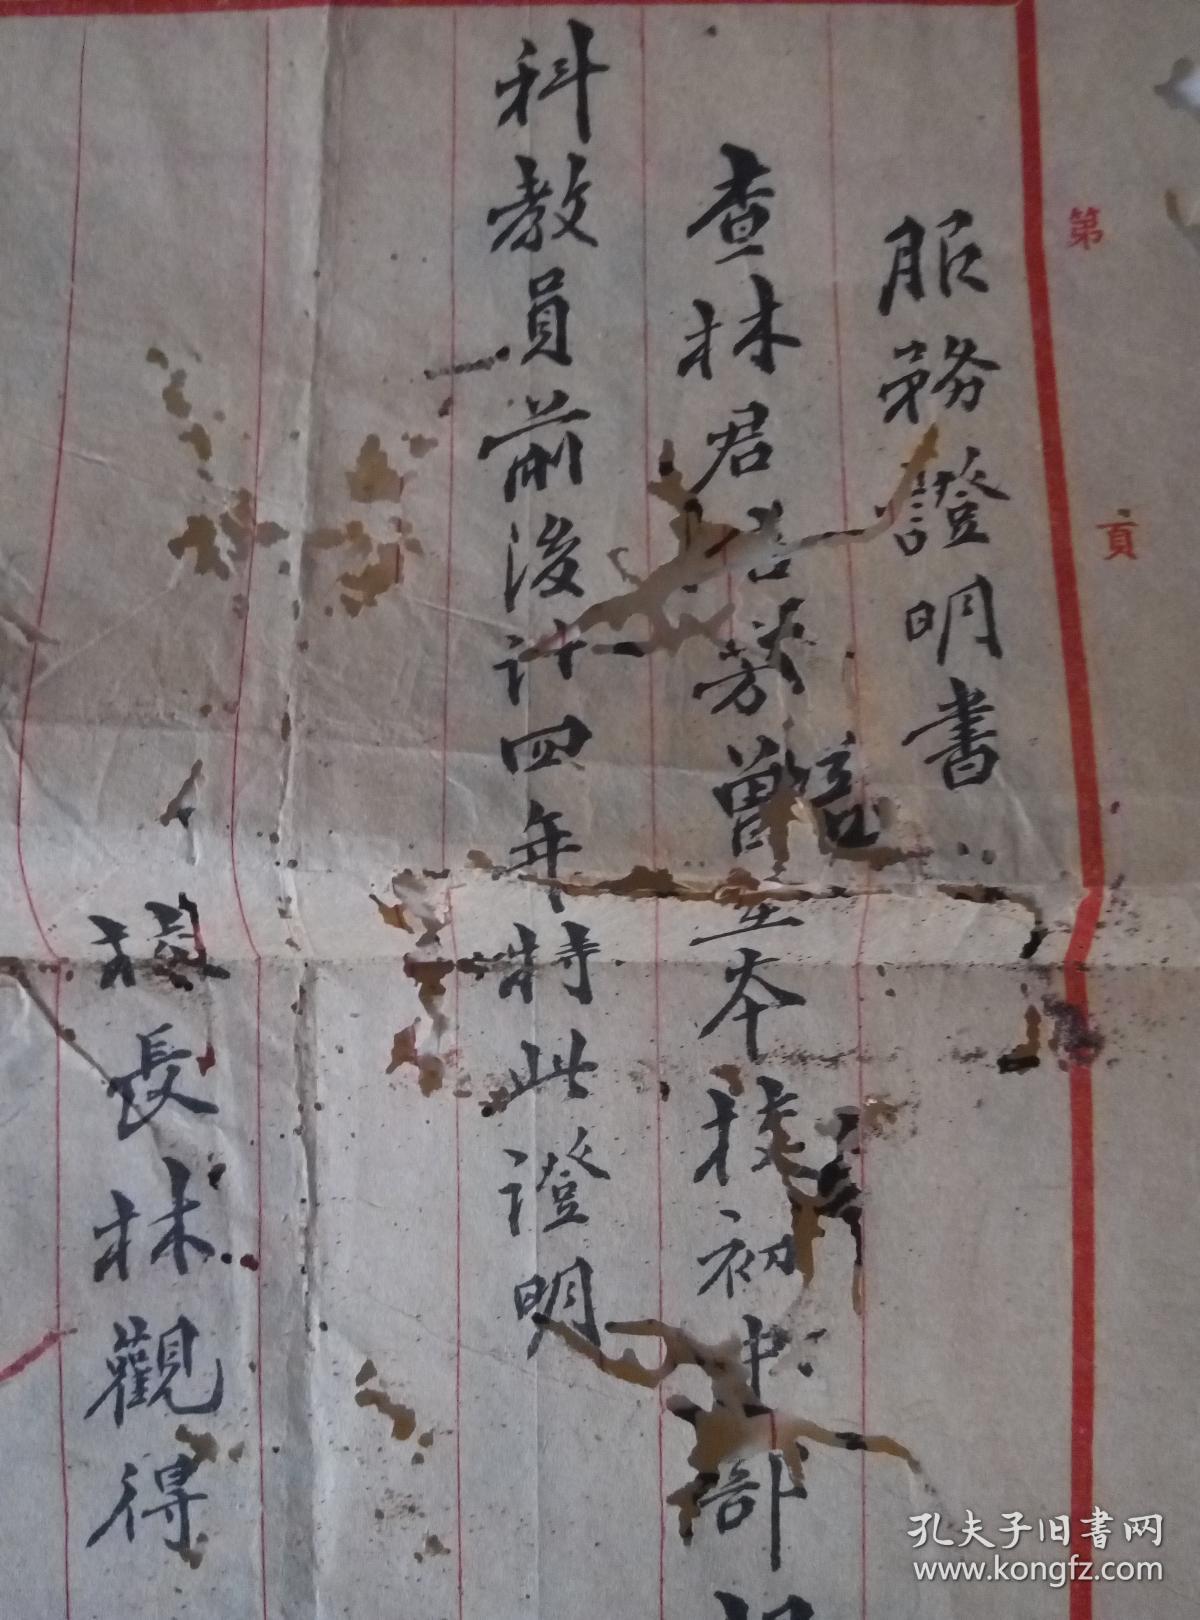 第 頁
服務證明書
查林君 芳曾在本校初中部
科教員前後計四年特此證明
校長林觀得
孔夫子旧书网
www.kongfz.com